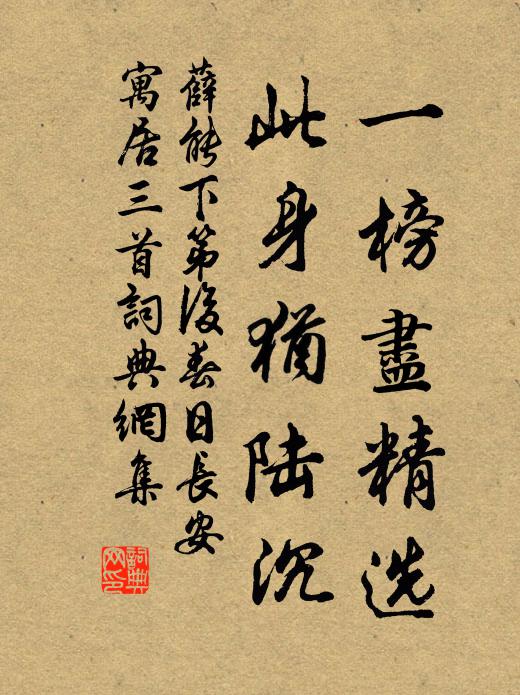 一榜盡精选
此身猶陆沉
薛能下第後春日長安
寓居三首詞典網集
詞典
网印